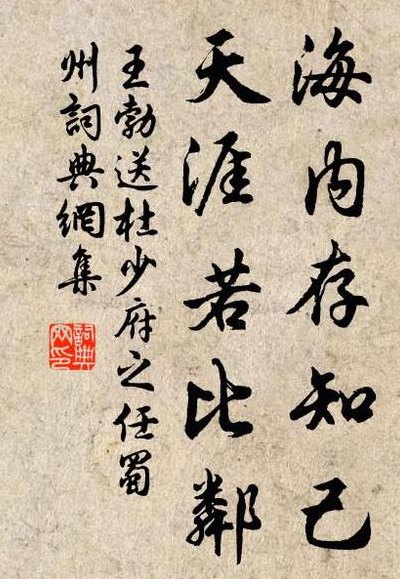 海内存知己
天涯若比鄰
王勃送杜少府之任蜀
州詞典網集
詞典
网印